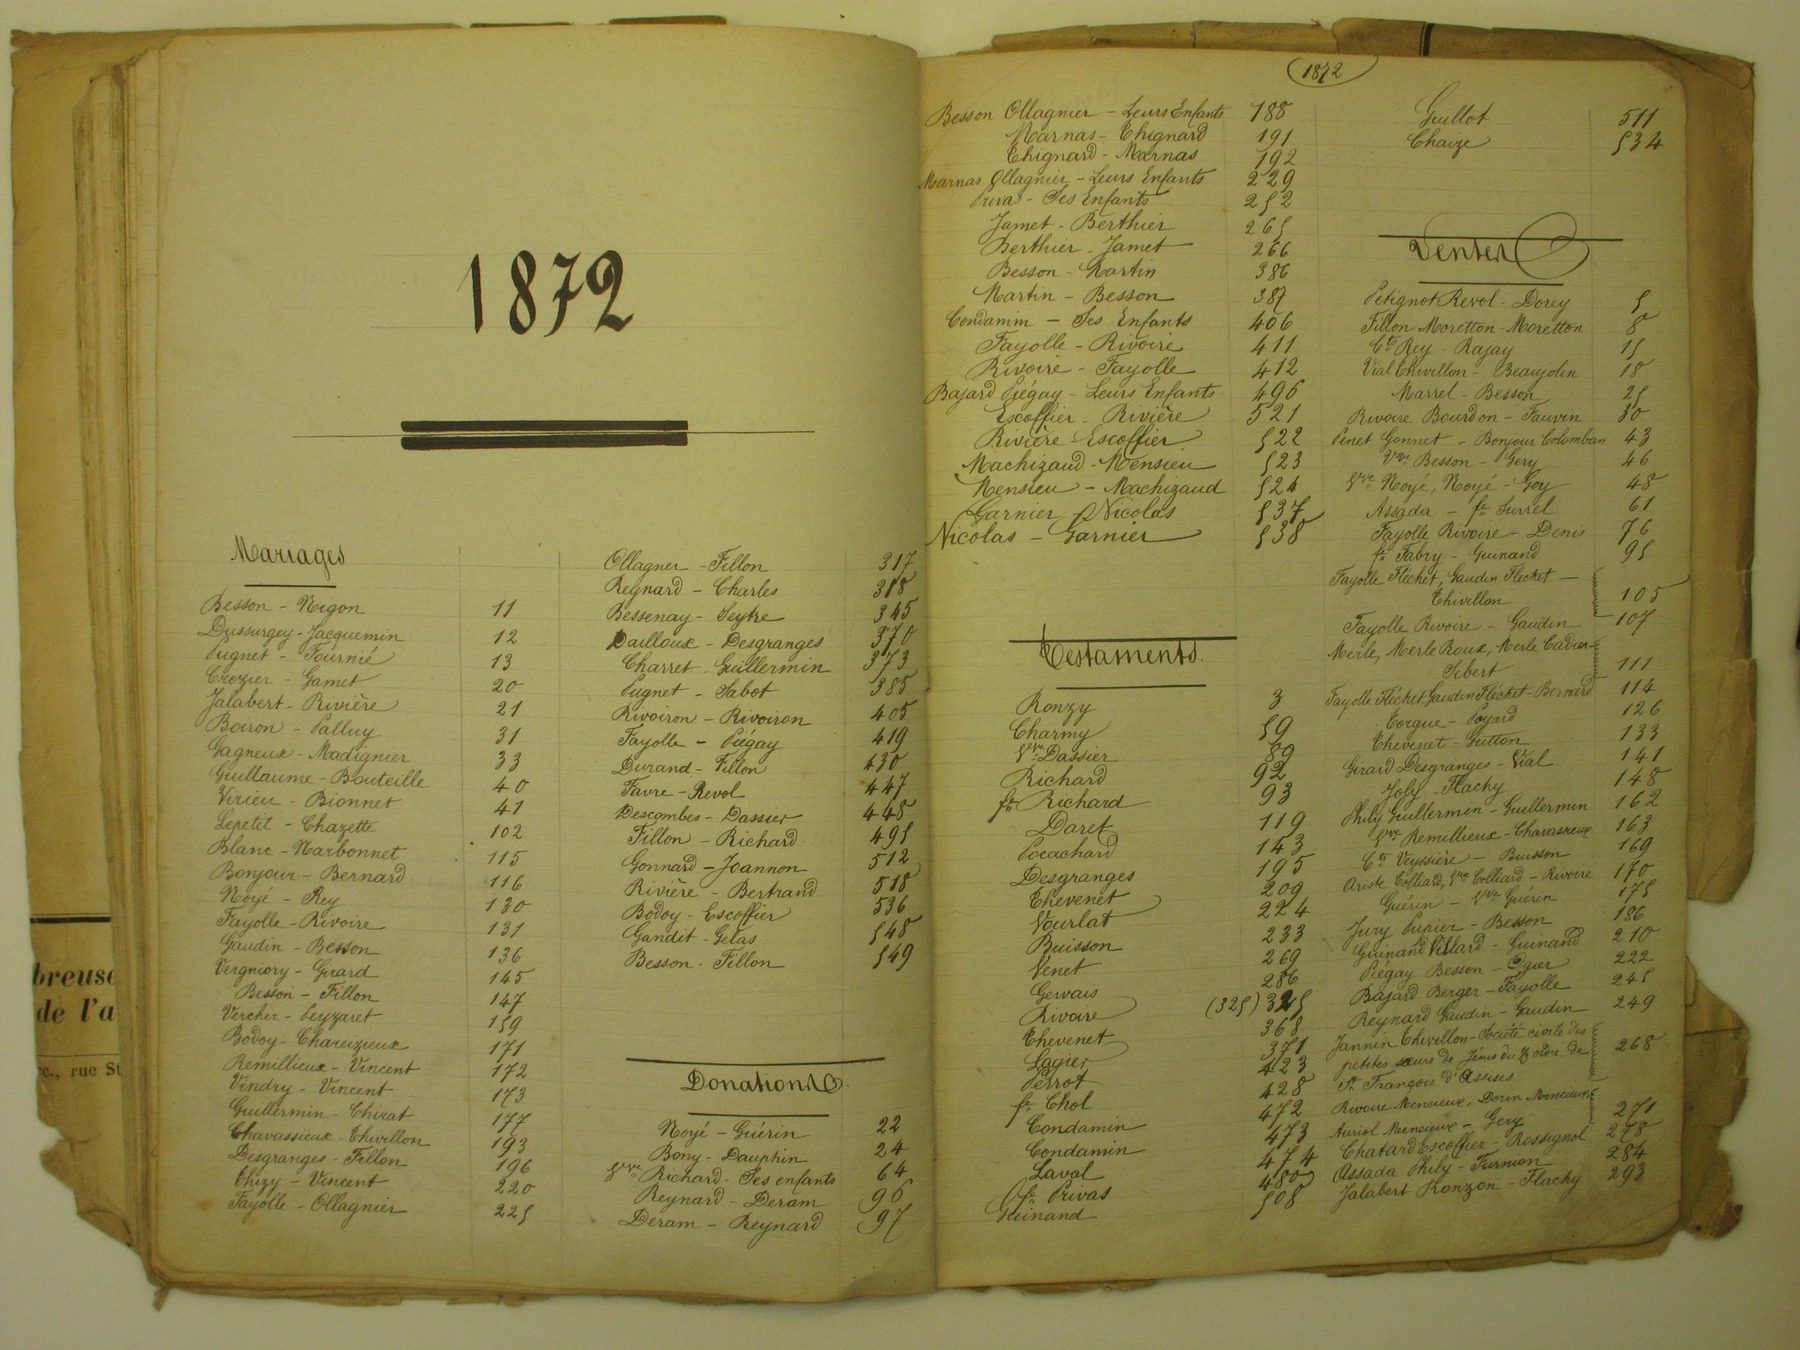 1872
Mariages
Besson - Nigon 11
Dussurgey - Jacquemin 12
Pugnet - Fournié 13
Crozier - Gamet 20
Jalabert - Rivière 21
Boiron - Palluy 31
Gagneux - Madignier 33
Guillaume - Bouteille 40
Virieu - Bionnet 41
Lepetit - Chazette 102
Blanc - Narbonnet 115
Bonjour - Bernard 116
Noyé - Rey 130
Fayolle - Rivoire 131
Gaudin - Besson 136
Vergniory - Girard 145
Besson - Fillon 147
Vercher - Peyzaret 159
Bodoy - Chareizieux 171
Remillieux - Vincent 172
Vindry - Vincent 173
Guillermin - Chirat 177
Chavassieux - Thivillon 193
Desgranges - Fillon 196
Thizy - Vincent 220
Fayolle - Ollagnier 225
Ollagner - Fillon 317
Reynard - Charles 318
Bessenay - Seytre 345
Dailloux - Desgranges 370
Charret - Guillermin 373
Pugnet - Sabot 385
Rivoiron - Rivoiron 405
Fayolle - Piégay 419
Durand - Fillon 430
Favre - Revol 447
Descombes - Dassier 448
Fillon - Richard 495
Gonnard - Joannon 512
Rivière - Bertrand 518
Bodoy - Escoffier 536
Gandit - Gelas 548
Besson - Fillon 549
Donations
Noyé - Guérin 22
Bony - Dauphin 24
Vve Richard - Ses enfants 64
Reynard - Deram 96
Deram - Reynard 97
1872
Besson Ollagnier - Leurs Enfants 188
Marnas - Thignard 191
Thignard - Marnas 192
Marnas Ollagnier - Leurs Enfants 229
Privas - Ses Enfants 252
Jamet - Berthier 265
Berthier - Jamet 266
Besson - Martin 386
Martin - Besson 387
Condamin - Ses Enfants 406
Fayolle - Rivoire 411
Rivoire - Fayolle 412
Bajard Piégay - Leurs Enfants 496
Escoffier - Rivière 521
Rivière - Escoffier 522
Machizaud - Mensieu 523
Mensieu - Machizaud 524
Garnier - Nicolas 537
Nicolas - Garnier 538
Testaments
Ronzy 3
Charmy 59
Vve Dassier 89
Richard 92
fe Richard 93
Daret 119
Pocachard 143
Desgranges 195
Thévenet 209
Vourlat 224
Buisson 233
Venet 269
Gervais 286
Rivoire (325) 325
Thevenet 368
Lagier 371
Perrot 423
fe Chol 428
Condamin 472
Condamin 473
Laval 474
fe Privas 480
Guinand 508
Guillot 511
Chaize 534
Ventes
Petignot Revol - Dorey 5
Fillon Moretton - Moretton 8
Cts Rey - Rajay 15
Vial Thivillon - Beaujolin 18
Marrel - Besson 25
Rivoire Bourdon - Fauvin 30
Penet Gonnet - Bonjour Colomban 43
Vve Besson - Gery 46
Vve Noyé, Noyé - Goy 48
Assada - fe Surrel 61
Fayolle Rivoire - Denis 76
fe Fabry - Guinand 95
Fayolle Fléchet, Gaudin Fléchet -
Thivillon 105
Fayolle Rivoire - Gaudin 107
Merle, Merle Roux, Merle Cadier -
Sibert 111
Fayolle Fléchet, Gaudin Fléchet - Bernard 114
Torgue - Poyard 126
Thevenet - Gutton 133
Girard Desgranges - Vial 141
Joly - Flachy 148
Phily Guillermin - Guillermin 162
Vve Remillieux - Chavassieux 163
Cts Veyssière - Buisson 169
Ariste Colliard, Vve Colliard - Rivoire 170
Guérin - Vve Guérin 175
Jury Pupier - Besson 186
Guinand Villard - Guinand 210
Piégay Besson - Ogier 222
Bajard Berger - Fayolle 245
Reynard Gaudin - Gaudin 249
Jannin Thivillon - Société civile des
petites sœurs de Jésus du 3e ordre de
St François d'Assises 268
Rivoire Mencieux, Dorin Mencieux,
Auriol Mencieux - Gery 271
Chatard Escoffier - Rossignol 278
Assada Phily - Furnion 284
Jalabert Ronzon - Flachy 293
breuse
de l'a
rue St